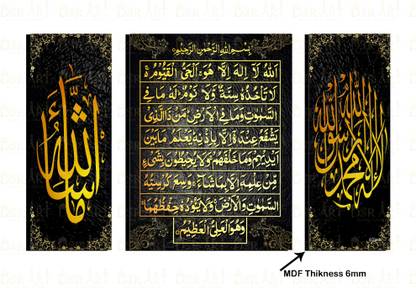 ما شاء الله
بِسْمِ اللهِ الرَّحْمٰنِ الرَّحِيْمِ
اَللهُ لَآ اِلٰهَ اِلَّا هُوَ اَلْحَيُّ الْقَيُّوْمُ ەۚ
لَا تَاْخُذُهٗ سِنَةٌ وَّلَا نَوْمٌ لَهٗ مَا فِي
السَّمٰوٰتِ وَمَا فِي الْاَرْضِ مَنْ ذَا الَّذِيْ
يَشْفَعُ عِنْدَهٗٓ اِلَّا بِاِذْنِهٖ يَعْلَمُ مَا بَيْنَ
اَيْدِيْهِمْ وَمَا خَلْفَهُمْ وَلَا يُحِيْطُوْنَ بِشَيْءٍ
مِّنْ عِلْمِهٖٓ اِلَّا بِمَا شَآءَ وَسِعَ كُرْسِيُّهُ
السَّمٰوٰتِ وَالْاَرْضَ وَلَا يَئُوْدُهٗ حِفْظُهُمَا
وَهُوَ الْعَلِيُّ الْعَظِيْمُ
لا إله إلا الله محمد رسول الله
MDF Thikness 6mm